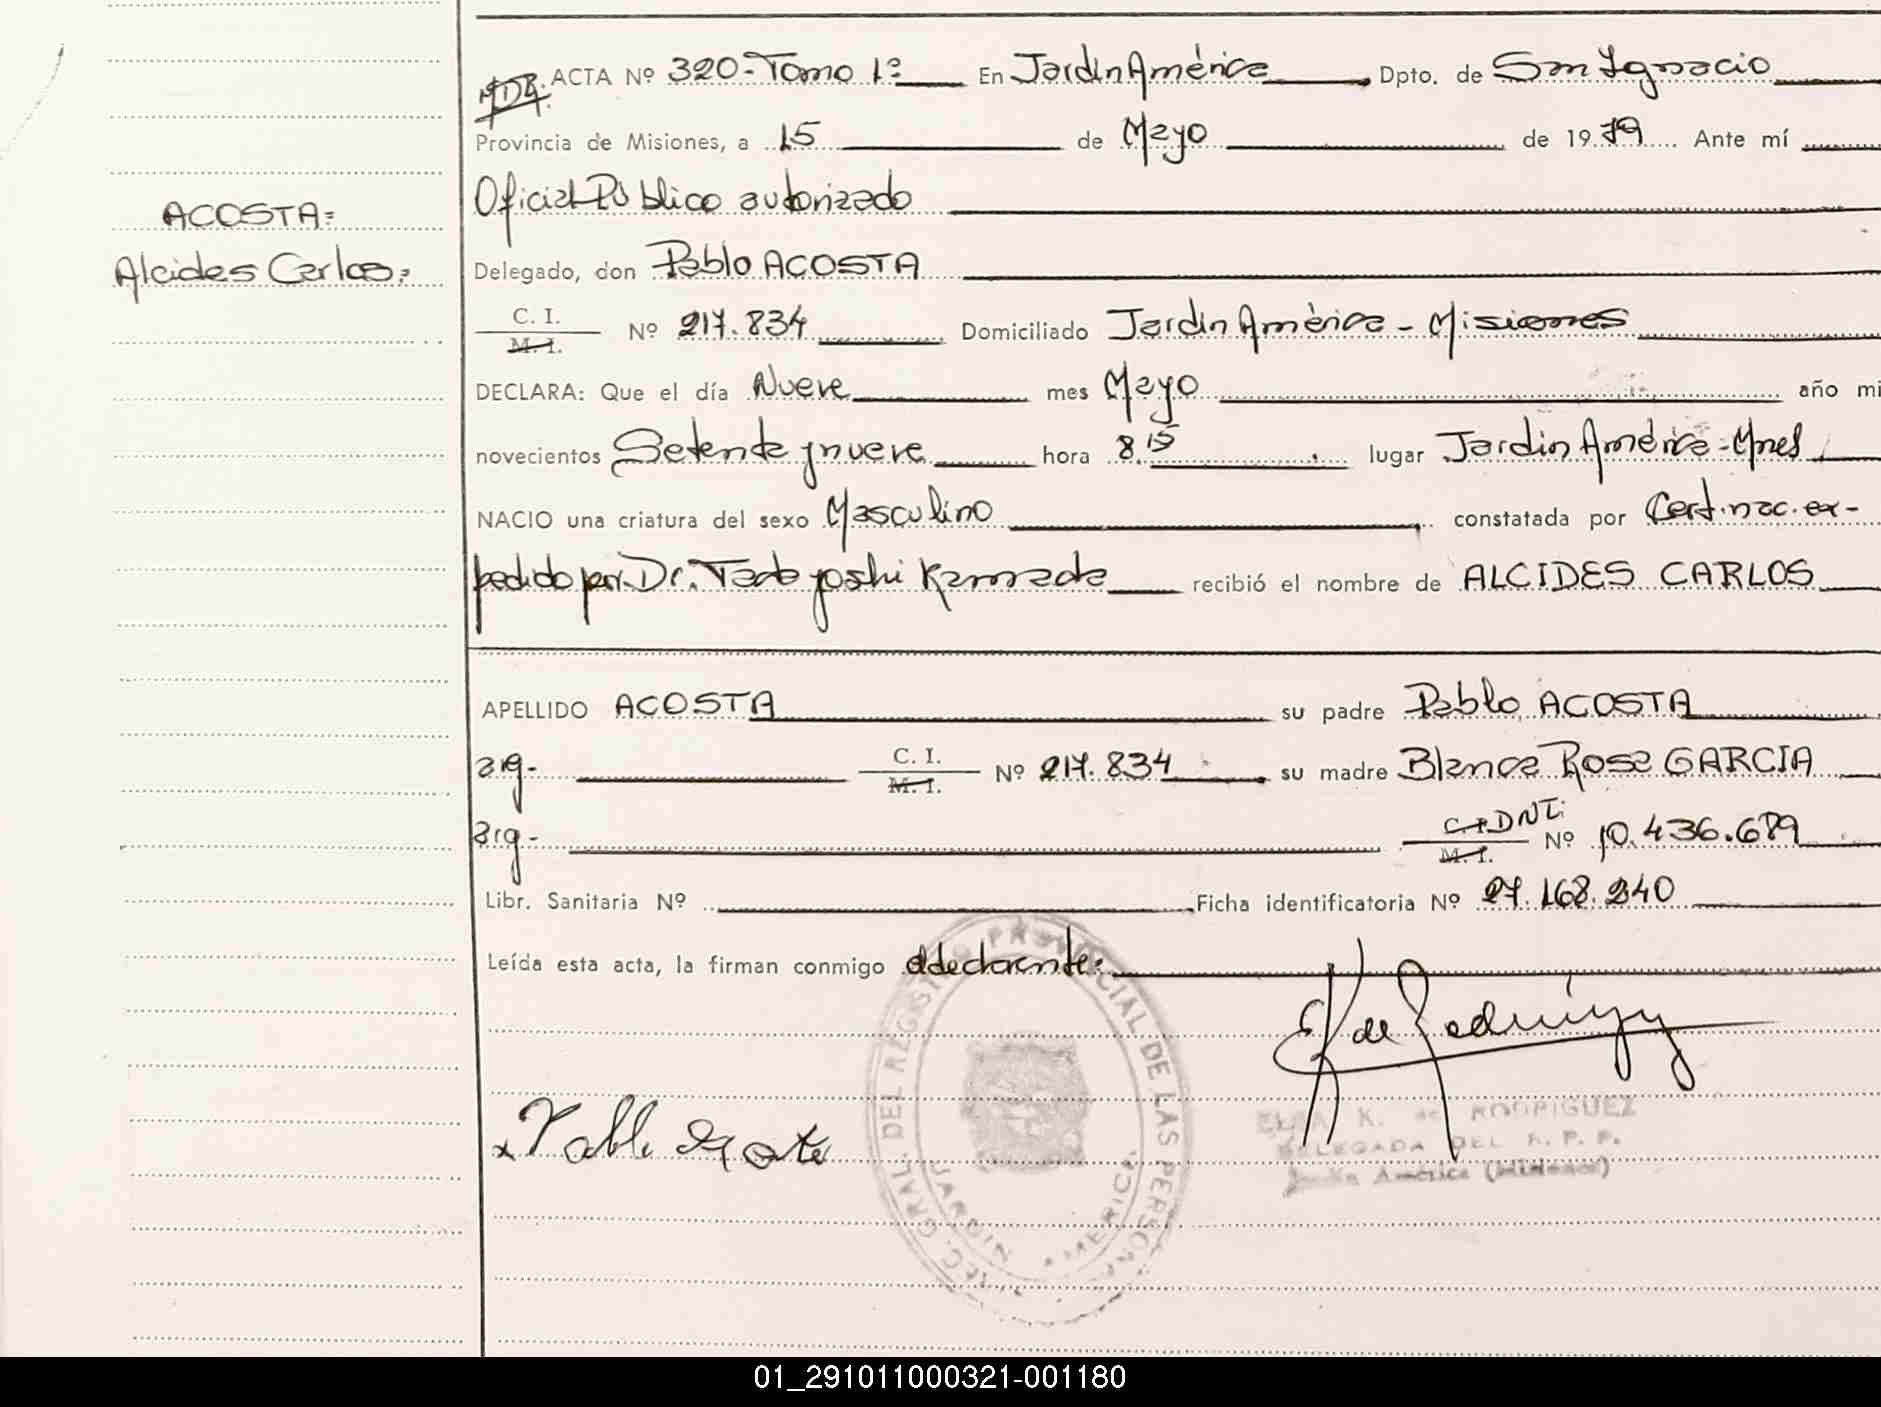 ACTA Nº 320-Tomo 1º En Jardín América, Dpto. de San Ignacio
Provincia de Misiones, a 15 de Mayo de 1979 Ante mí
Oficial Público autorizado
ACOSTA:
Alcides Carlos:
Delegado, don Pablo ACOSTA
C. I. M. I. Nº 217.834 Domiciliado Jardín América - Misiones
DECLARA: Que el día Nueve mes Mayo año mi
novecientos Setenta y nueve hora 8.15 lugar Jardín América-Mnes
NACIO una criatura del sexo Masculino constatada por Cert.nac.ex-
pedido por Dr. Tadayoshi Kamada recibió el nombre de ALCIDES CARLOS
APELLIDO ACOSTA su padre Pablo ACOSTA
arg- C. I. M. I. Nº 217.834 su madre Blanca Rosa GARCIA
arg- C.I. DNI: M. I. Nº 10.436.679
Libr. Sanitaria Nº Ficha identificatoria Nº 27.168.240
Leída esta acta, la firman conmigo el declarante:
DEL REGISTRO PROVINCIAL DE LAS PERSONAS
JARDIN AMERICA
Pablo Acosta
E K de Rodríguez
ELSA K. de RODRIGUEZ
DELEGADA DEL R. P. P.
Jardín América (Misiones)
01_291011000321-001180